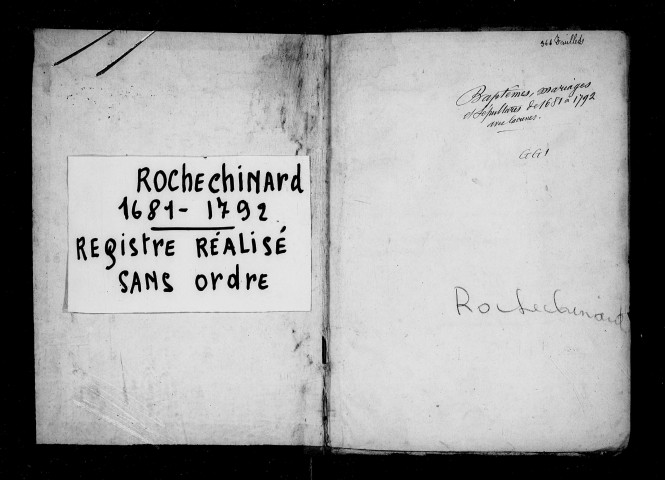 ROCHECHINARD
1681-1792
REGISTRE RÉALISÉ
SANS ORDRE
366 feuillets
Baptêmes, mariages
et Sépultures de 1681 à 1792
avec lacunes.
GG1
Rochechinard